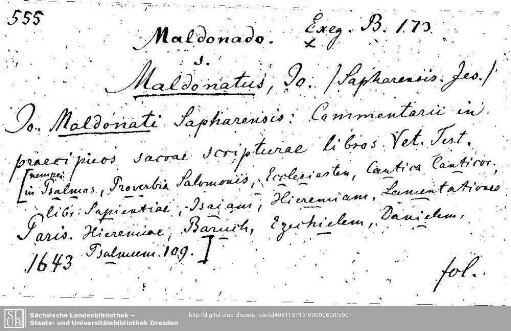 555
Maldonado. Exeg. B. 173
s. x
Maldonatus, Jo. /Sapharensis. Jes./
Jo. Maldonati Sapharensis: Commentarii in
praecipuos sacrae scripturae libros Vet. Test.
[nempe:
in Psalmos, Proverbia Salomonis, Ecclesiasten, Cantica Canticor,
libr. Sapientiae, Isaiam, Hieremiam, Lamentationes
Paris. Hieremiae, Baruch, Ezechielem, Danielem,
1643 Psalmum 109.]
fol.
Sächsische Landesbibliothek –
Staats- und Universitätsbibliothek Dresden